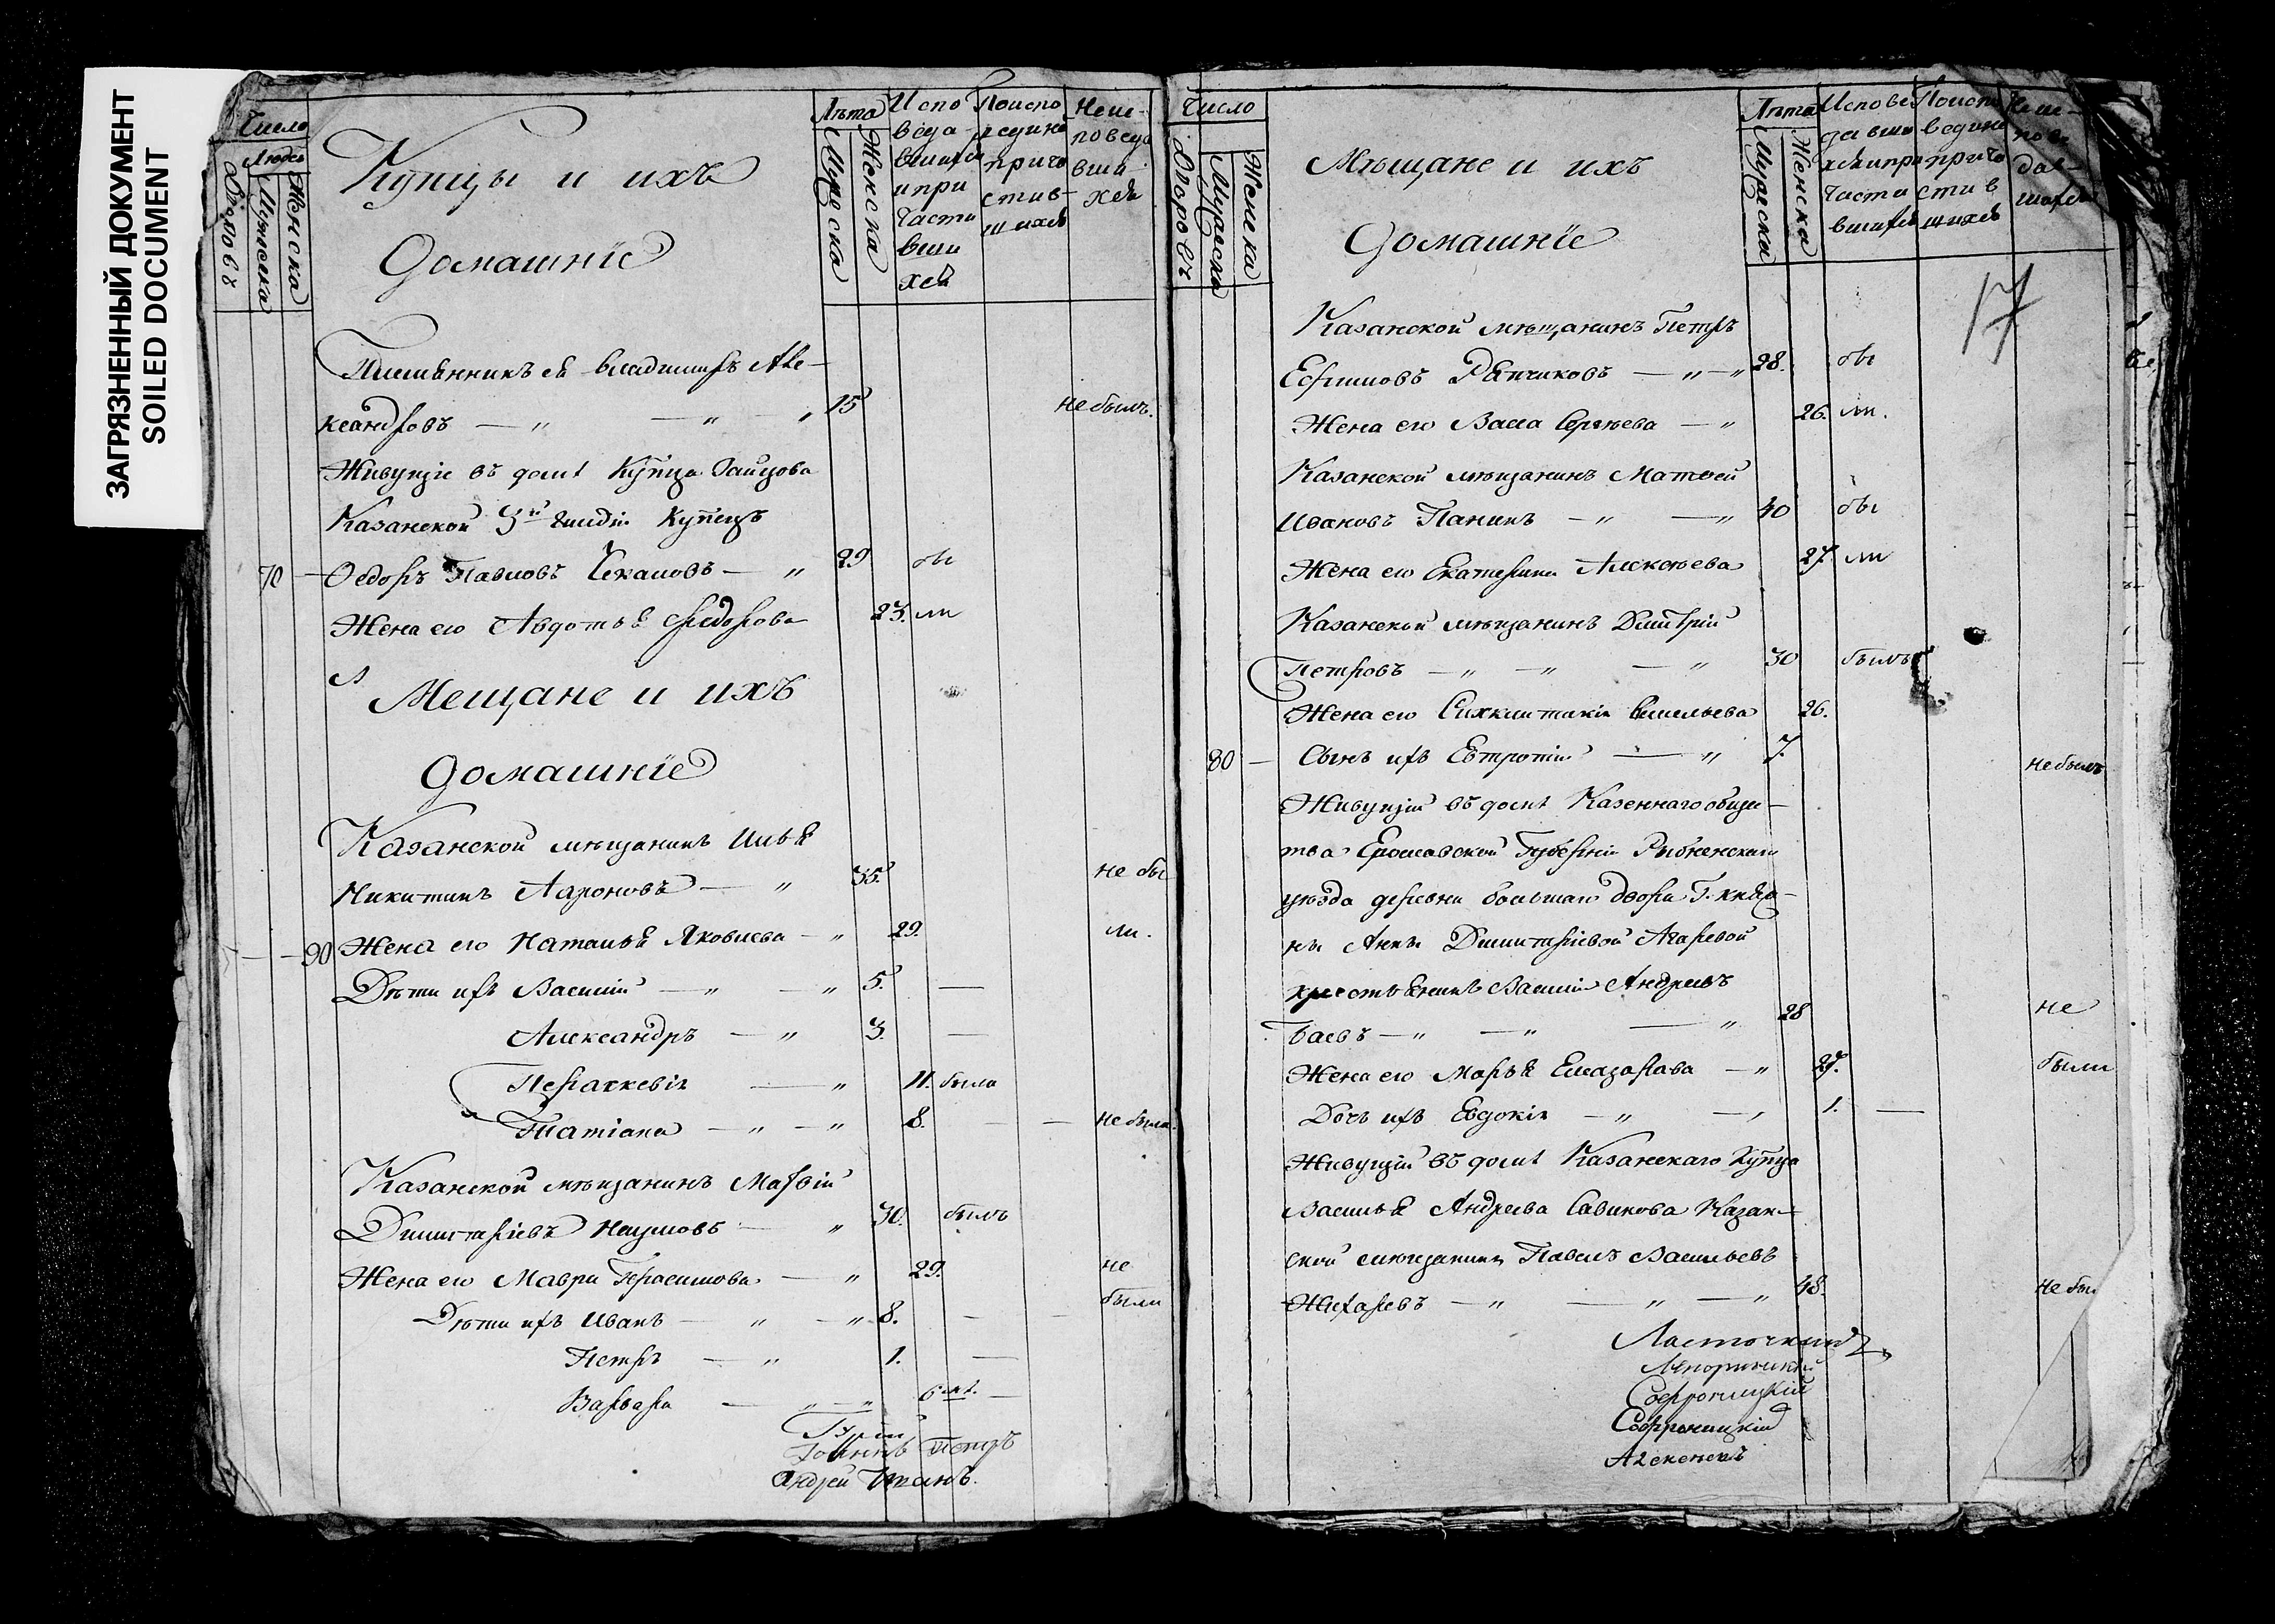 ЗАГРЯЗНЕННЫЙ ДОКУМЕНТ
SOILED DOCUMENT
Число
Людей
Дворовъ
Мужеска
Женска
Купцы и ихъ
Домашніе
Лѣта
Мужеска
Женска
Испо
веда
вших
и при
части
вши
хся
Поиспо
ведин
причо
стив
шихся
Неис-
поведа
вши-
хся
Племянникъ ея Владимиръ Але-
ксандровъ — 15 небылъ.
Живущіе въ домѣ Купца Заицова
Казанской 3й гилдіи Купецъ
70 — Ѳедоръ Павловъ Чекаловъ — 29 бы
Жена его Авдотья Федорова 23. ли
Мещане и ихъ
Домашніе
Казанской мѣщанинъ Илья
Никитинъ Ларионовъ — 35. не бы
90 Жена его Наталья Яковлева — 29. ли.
Дѣти ихъ Василій — 5. —
Александръ — 3. —
Параскевія — 11. была
Татіана — 8. — небыла.
Казанской мѣщанинъ Матвій
Димитріевъ Наумовъ — 30. былъ
Жена его Мавра Герасимова — 29. не
были
Дѣти ихъ Иванъ — 8. —
Петръ — 1. —
Варвара — 6 мѣ. —
Гурій
Іоаннъ Петръ
Андрей Іоаннъ.
Число
Дворовъ
Мужеска
Женска
Мѣщане и ихъ
Домашніе
Лѣта
Мужеска
Женска
Испове
давши
хся и при
части
вшихся
Поисп
ведине
причо
стив
шихся
Неис-
пове
дав-
шихся
17
Казанской мѣщанинъ Петръ
Ефимовъ Рѣпчиковъ — 28. бы
Жена его Васса Сергѣева — 26. ли.
Казанской мѣщанинъ Матвей
Ивановъ Панинъ — 40 бы
Жена его Екатерина Алексѣева 27. ли
Казанской мѣщанинъ Дмитрій
Петровъ — 30 былъ
Жена его Емельева 26.
80 — Сынъ ихъ Евтропій — 7. небылъ
Живущій въ домѣ Казеннаго общес-
тва Ерославской Губерніи Рыбненскаго
уѣзда деревни большаго двора Г. княг-
ни Анны Димитріевой Агаревой
крестьянинъ Василій Андреевъ
Баевъ — 28 не
Жена его Марья Елизарава — 27. были
Дочь ихъ Евдокія — 1. —
Живущій въ домѣ Казанскаго Купца
Василья Андреева Савинова Казан-
ской мѣщанинъ Павелъ Васильевъ
Жихаревъ — 48. небы
Ласточкинъ
Софроницкій
Софроницкій